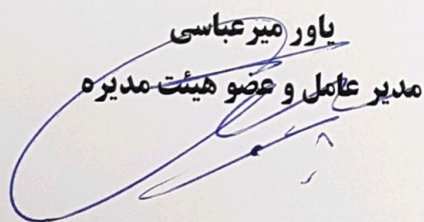 یاور میرعباسی
مدیر عامل و عضو هیئت مدیره